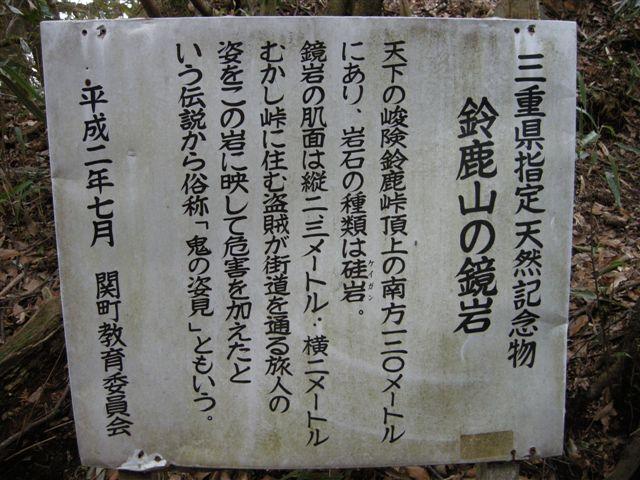 三重県指定天然記念物
鈴鹿山の鏡岩
天下の峻険鈴鹿峠頂上の南方一二〇メートル
にあり、岩石の種類は硅岩。
ケイガン
鏡岩の肌面は縦二、三メートル:横二メートル
むかし峠に住む盗賊が街道を通る旅人の
姿をこの岩に映して危害を加えたと
いう伝説から俗称「鬼の姿見」ともいう。
平成二年七月 関町教育委員会